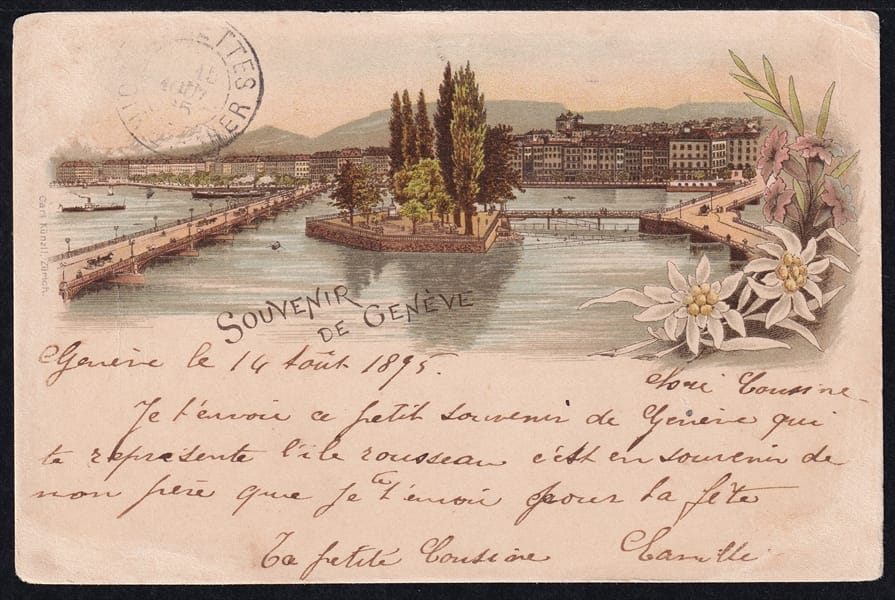 TTES
15
AOUT
95
Carl Künzli, Zürich.
SOUVENIR
DE GENÈVE
Genève le 14 Août 1895.
Cousine
Je t'envoie ce petit souvenir de Genève qui
te représente l'ile rousseau c'est en souvenir de
mon père que je te t'envoie pour ta fête
Ta petite Cousine Camille